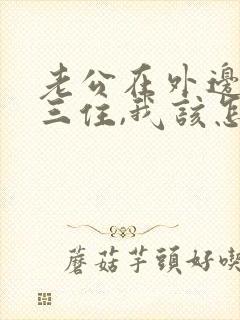 老公在外邊
三住,我該怎
蘑菇芋頭好喫